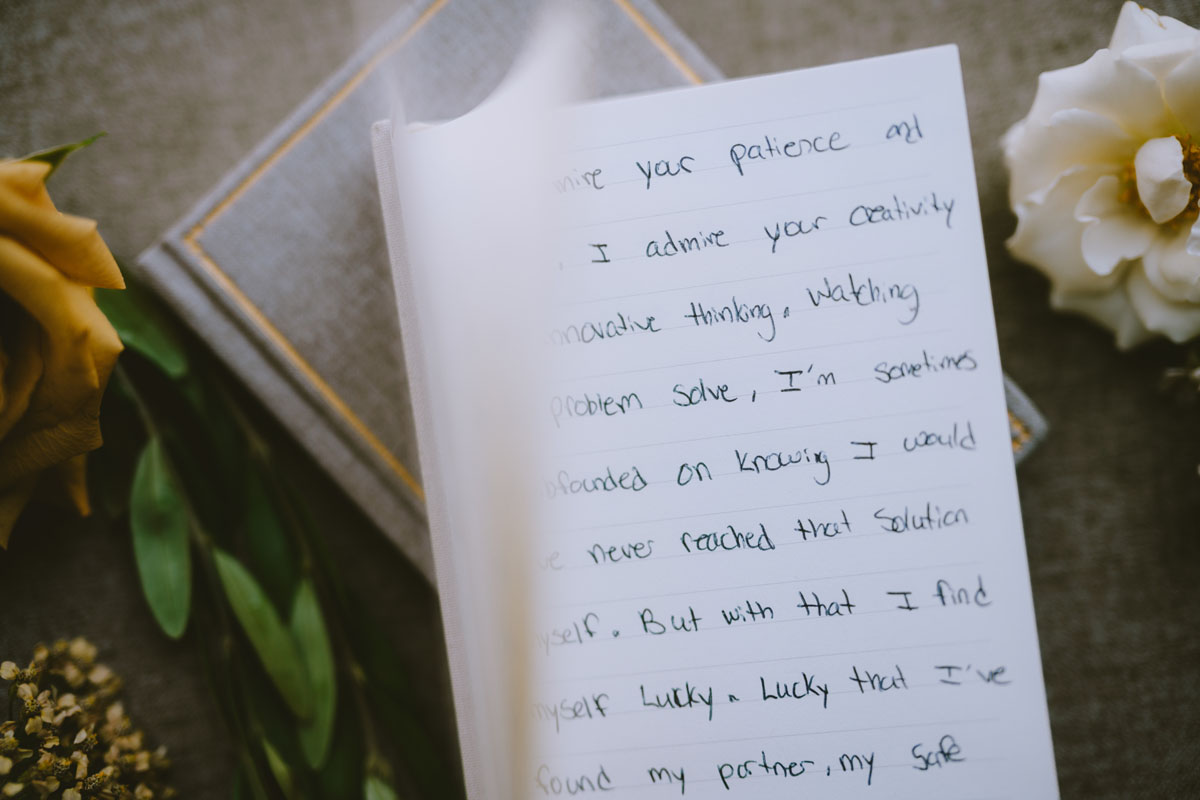 mire your patience and
. I admire your creativity
nnovative thinking. Watching
problem solve, I'm sometimes
ofounded on knowing I would
ve never reached that solution
yself. But with that I find
myself Lucky. Lucky that I've
found my partner, my safe